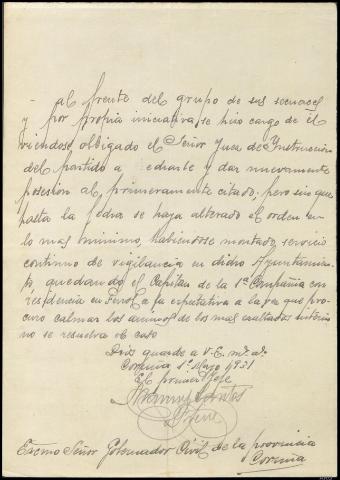 al frente del grupo de sus secuaces
y por propia iniciativa, se hizo cargo de él
viendose obligado el Señor Juez de Instrucción
del partido a y dar nuevamente
posesion al primeramente citado; pero sin que
hasta la fecha se haya alterado el orden en
lo mas minimo, habiendose montado servicio
continuo de vigilancia en dicho Ayuntamien-
to, quedando el Capitan de la 1ª Compañia con
residencia en Ferrol a la espectativa a la par que pro-
curo calmar los animos de los mas exaltados interin
no se resuelva el caso
Dios guarde a V.E. ms. as.
Coruña 1º Mayo 1931
El primer Jefe
Excmo Señor Gobernador Civil de la provincia
Coruña